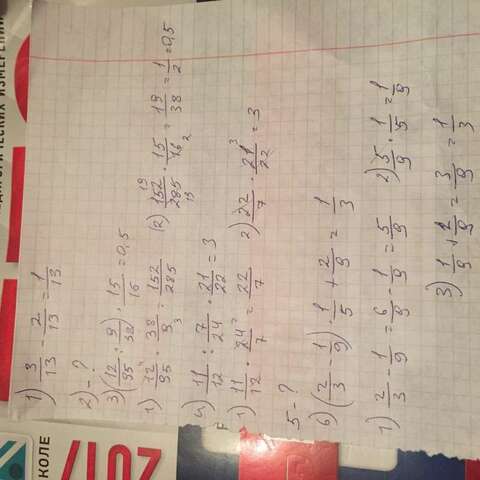 ДАГОГИЧЕСКИХ ИЗМЕРЕНИЙ
ШКОЛЕ
2017
1) 3/13 - 2/13 = 1/13
2) - ?
3) (12/95 : 9/38) · 15/16 = 0,5
1) 12/95 · 38/9 = 152/285 2) 152/285 · 15/16 = 19/38 = 1/2 = 0,5
4) 11/12 : 7/24 · 21/22 = 3
1) 11/12 · 24/7 = 22/7 2) 22/7 · 21/22 = 3
5 - ?
6) (2/3 - 1/9) · 1/5 + 2/9 = 1/3
1) 2/3 - 1/9 = 6/9 - 1/9 = 5/9 2) 5/9 · 1/5 = 1/9
3) 1/9 + 2/9 = 3/9 = 1/3